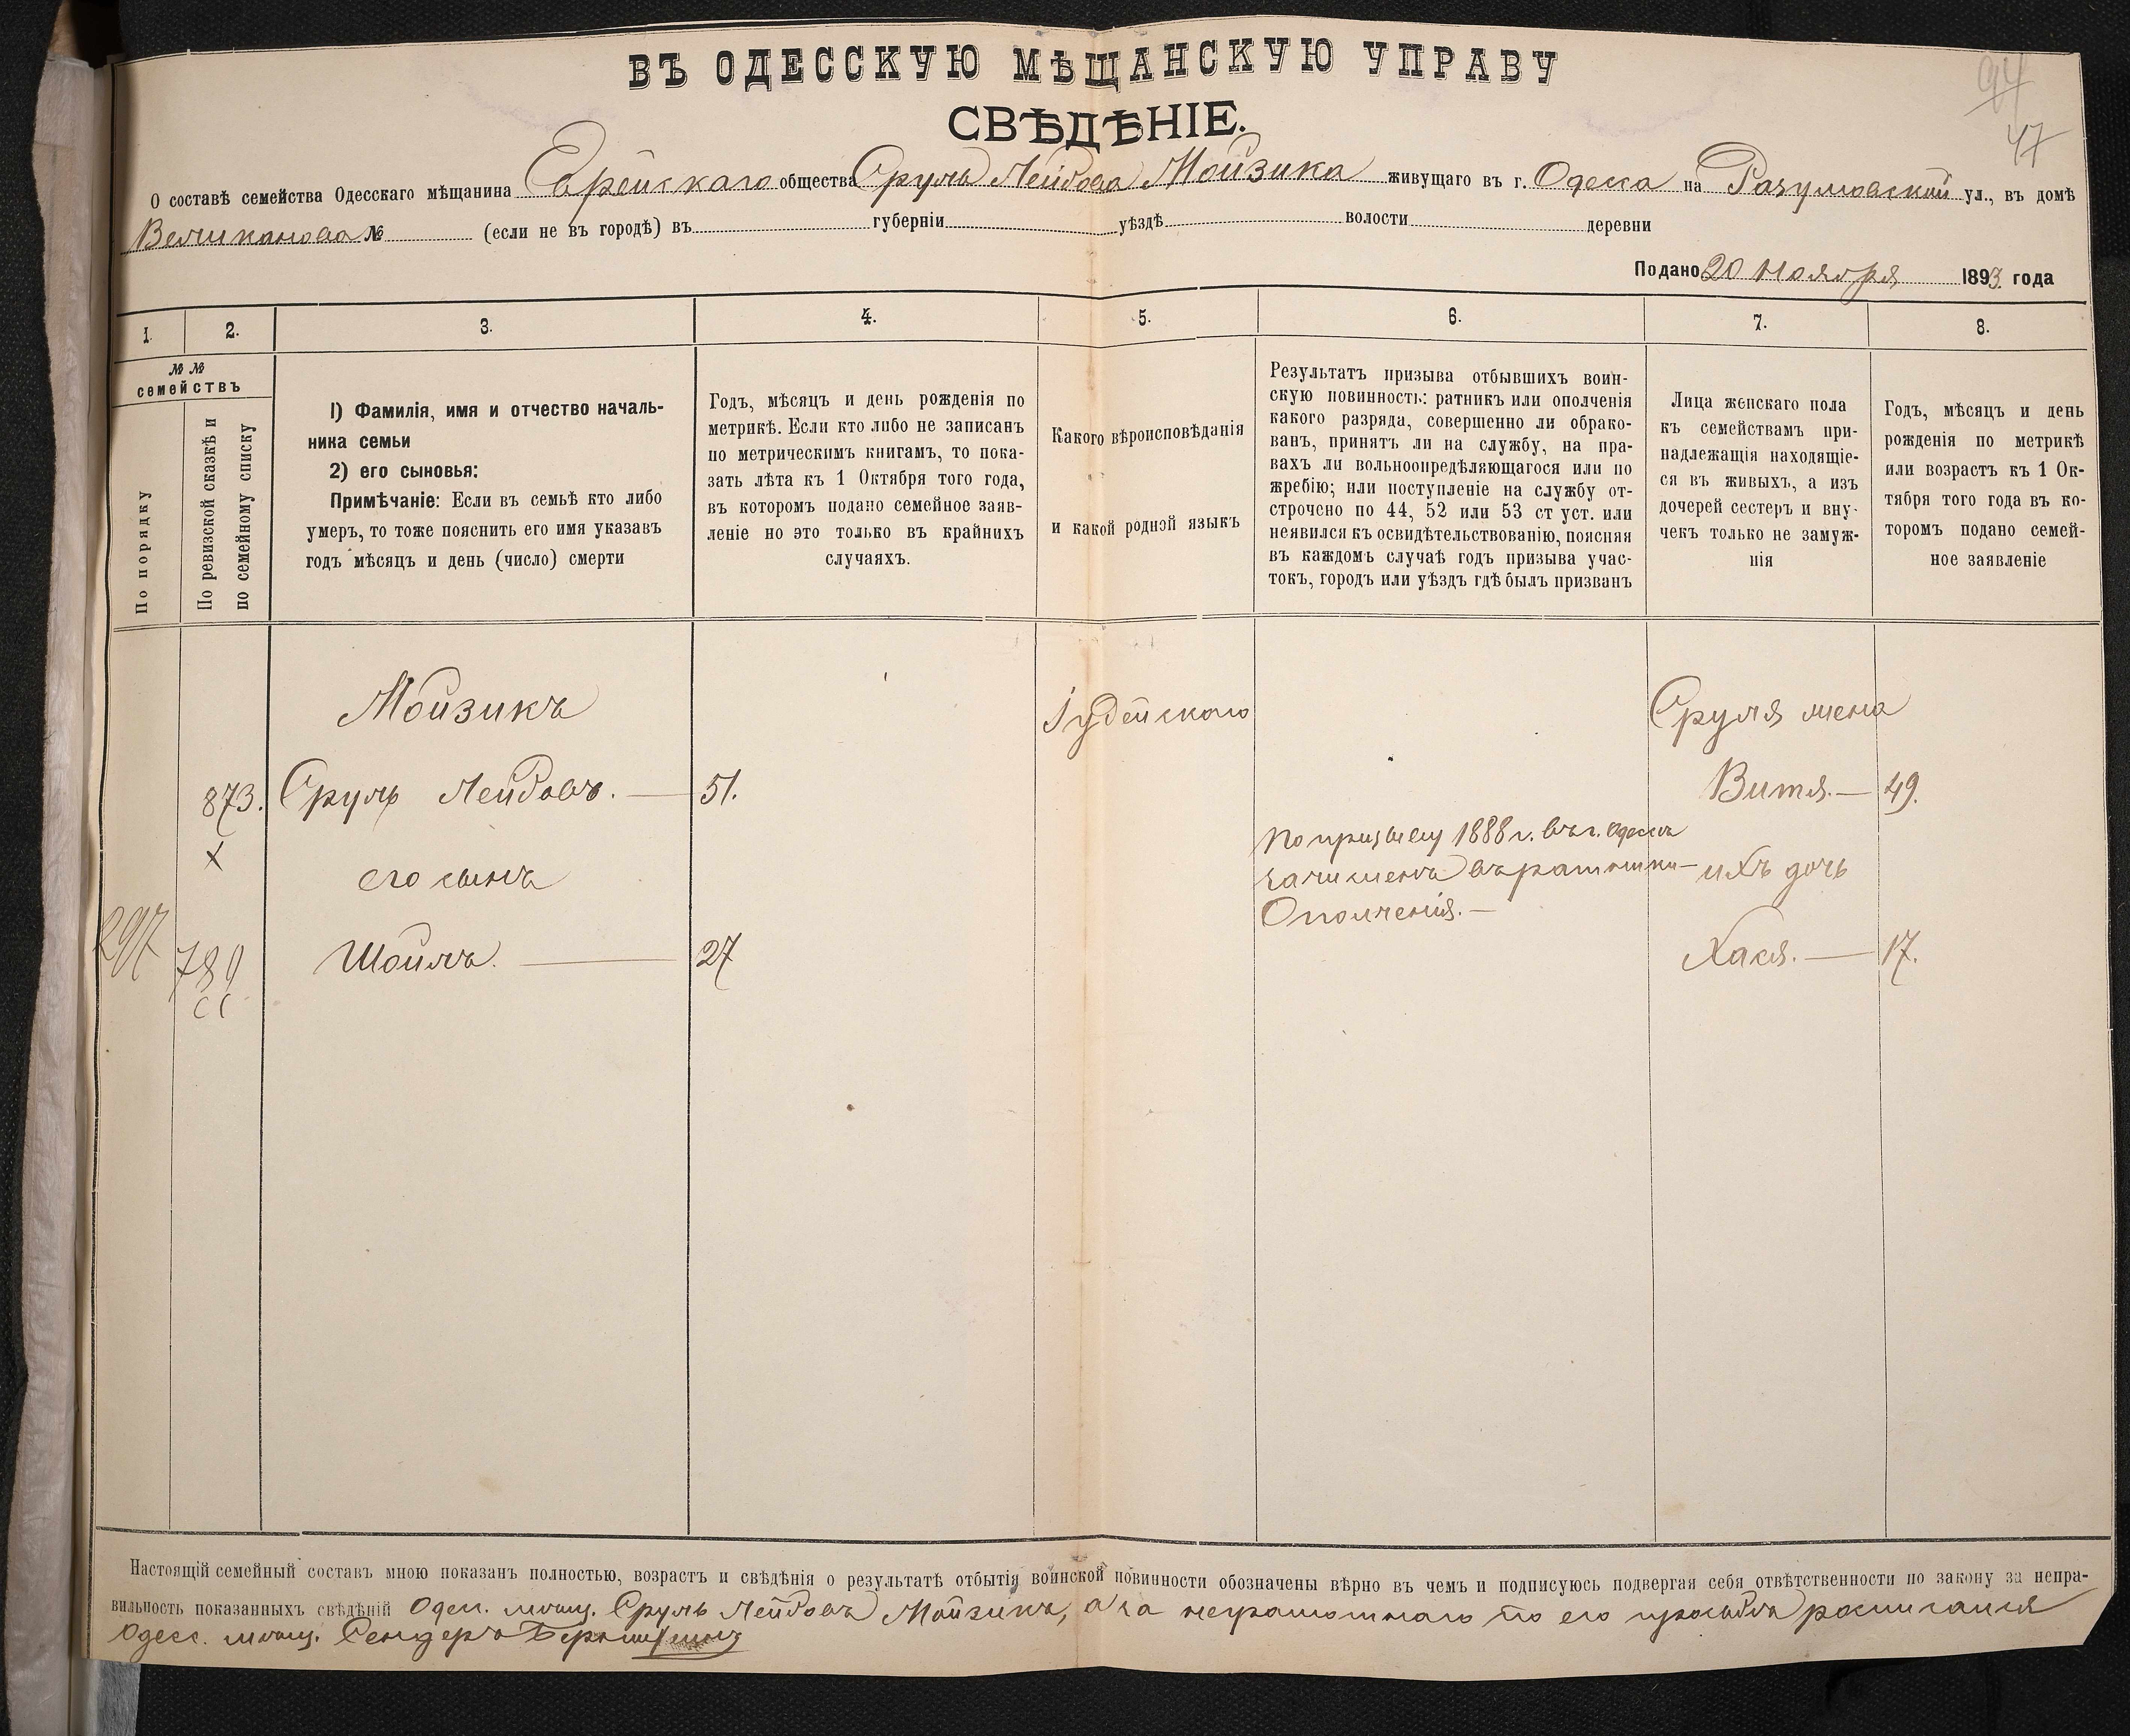 ВЪ ОДЕССКУЮ МѢЩАНСКУЮ УПРАВУ
94
СВѢДѢНІЕ.
47
О составѣ семейства Одесскаго мѣщанина Еврейскаго общества Сруль Лейбова Мойзика живущаго въ г. Одесса на Разумовской ул., въ домѣ
Великанова № (если не въ городѣ) въ губерніи уѣздѣ волости деревни
Подано 20 Ноября 1893 года
1. 2. 3. 4. 5. 6. 7. 8.
№ №
семействъ
По порядку
По ревизской сказкѣ и
по семейному списку
1) Фамилія, имя и отчество началь-
ника семьи
2) его сыновья:
Примѣчаніе: Если въ семьѣ кто либо
умеръ, то тоже пояснить его имя указавъ
годъ мѣсяцъ и день (число) смерти
Годъ, мѣсяцъ и день рожденія по
метрикѣ. Если кто либо не записанъ
по метрическимъ книгамъ, то пока-
зать лѣта къ 1 Октября того года,
въ которомъ подано семейное заяв-
леніе но это только въ крайнихъ
случаяхъ.
Какого вѣроисповѣданія
и какой родной языкъ
Результатъ призыва отбывшихъ воин-
скую повинность: ратникъ или ополченія
какого разряда, совершенно ли обрако-
ванъ, принятъ ли на службу, на пра-
вахъ ли вольноопредѣляющагося или по
жребію; или поступленіе на службу от-
строчено по 44, 52 или 53 ст уст. или
неявился къ освидѣтельствованію, поясняя
въ каждомъ случаѣ годъ призыва учас-
токъ, городъ или уѣздъ гдѣ былъ призванъ
Лица женскаго пола
къ семействамъ при-
надлежащія находящіе-
ся въ живыхъ, а изъ
дочерей сестеръ и вну-
чекъ только не замуж-
нія
Годъ, мѣсяцъ и день
рожденія по метрикѣ
или возрастъ къ 1 Ок-
тября того года въ ко-
торомъ подано семей-
ное заявленіе
Мойзикъ Іудейскаго Сруля жена
873. Сруль Лейбовъ. — 51. Витя. — 49.
х
его сынъ
По призыву 1888 г. въ г. Одессѣ
зачисленъ въ ратники
Ополченія. —
ихъ дочь
297 789 Шойлъ. — 27 Хася. — 17.
Настоящій семейный составъ мною показанъ полностью, возрастъ и свѣдѣнія о результатѣ отбытія воинской повинности обозначены вѣрно въ чемъ и подписуюсь подвергая себя отвѣтственности по закону за непра-
вильность показанныхъ свѣдѣній Одес. мѣщ. Сруль Лейбовъ Мойзикъ, а за неграмотнаго по его просьбѣ росписался
Одесс. мѣщ. Сендеръ